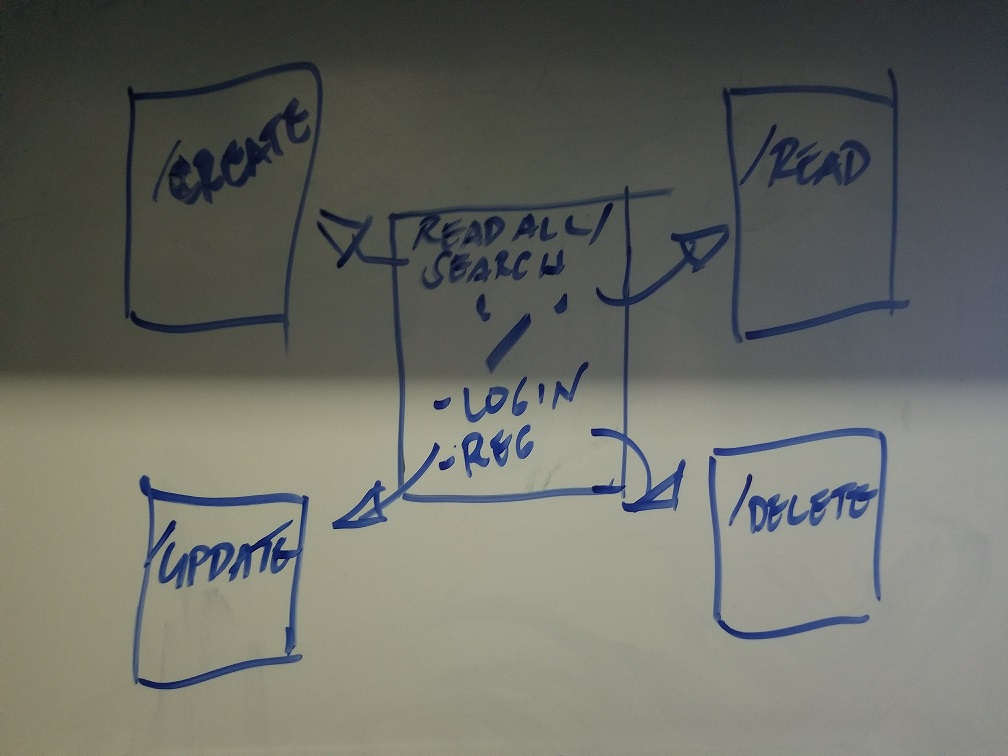 /CREATE
/READ
READ ALL/
SEARCH
' / '
- LOGIN
- REG
/UPDATE
/DELETE